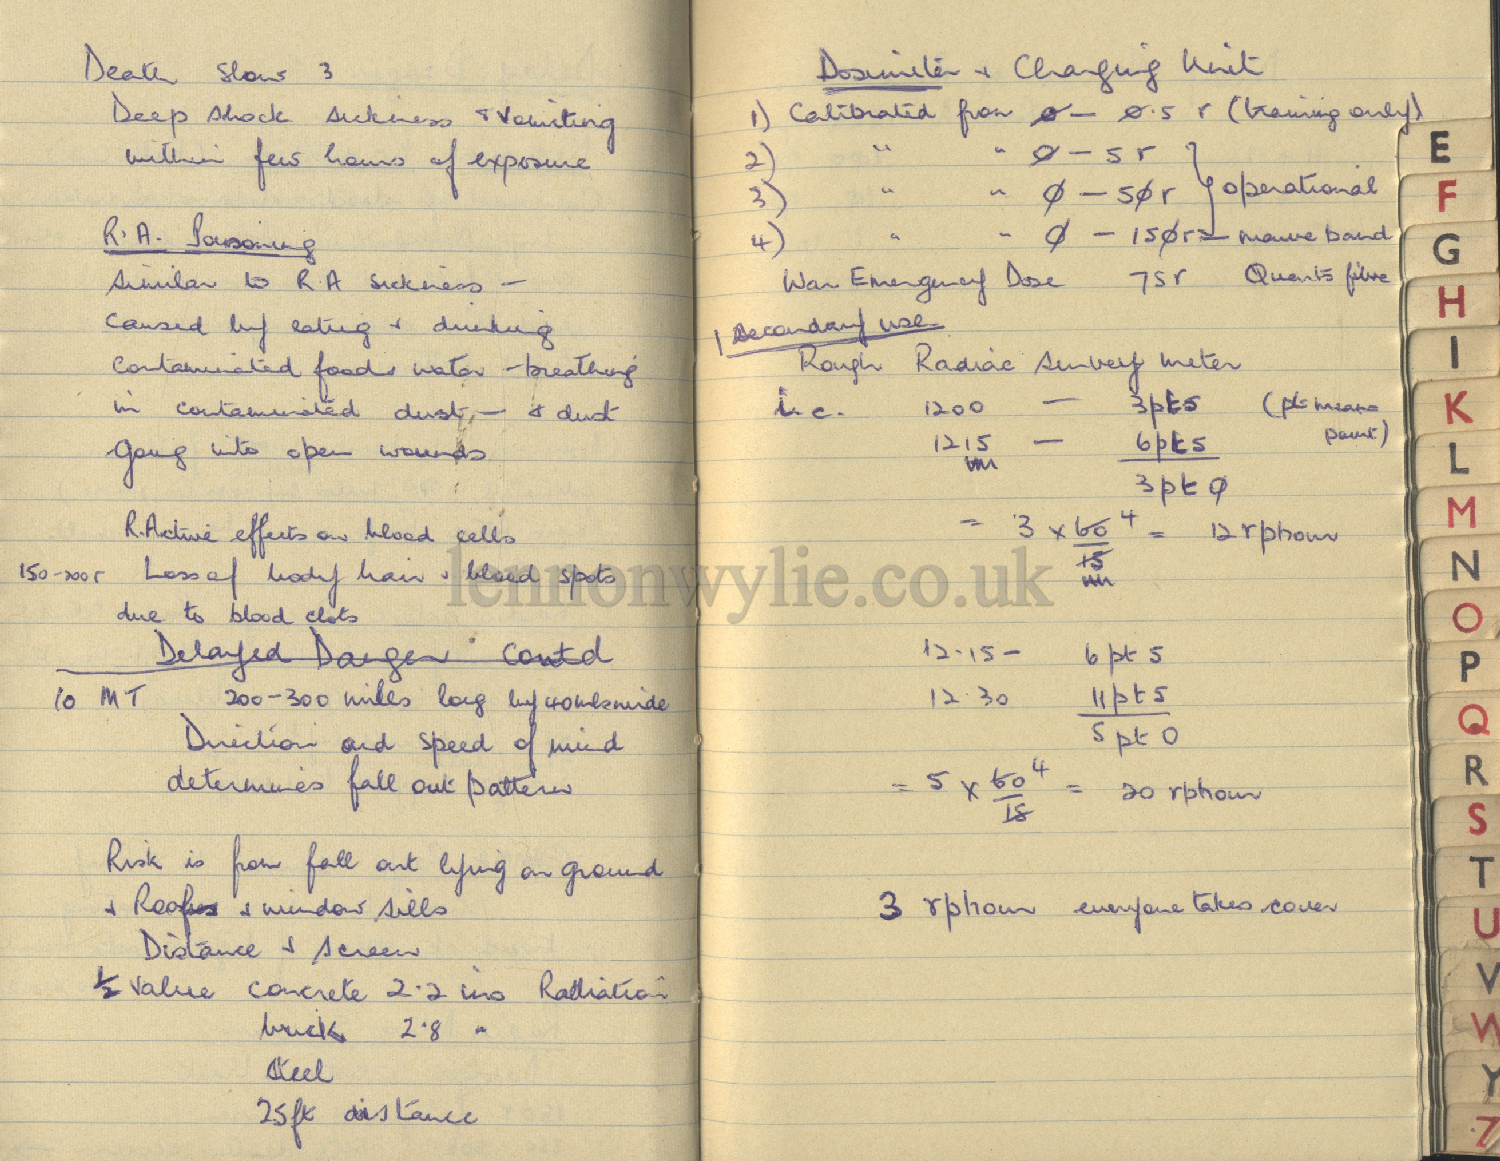 Death slow 3
Deep shock sickness & vomiting
within few hours of exposure
R.A. Poisoning
Similar to R A sickness -
caused by eating & drinking
contaminated food & water - breathing
in contaminated dust - & dust
going into open wounds
R.Active effects on blood cells
150-200r Loss of body hair & blood spots
due to blood clots
Delayed Danger Contd
10 MT 200-300 miles long by 40 miles wide
Direction and speed of wind
determines fall out pattern
Risk is from fall out lying on ground
& Roofs & window sills
Distance & screen
½ value concrete 2.2 ins Radiation
brick 2.8 "
Steel
25ft distance
Dosimeter & Charging Unit
1) Calibrated from ø - ø.5 r (training only)
2) " " ø - 5 r
3) " " ø - 5ør operational
4) " " ø - 15ør - mauve band
War Emergency Dose 75r Quartz fibre
1 Secondary use
Rough Radiac survey meter
i.e. 1200 - 3pt5 (pt means
1215 - 6pt5 point)
3pt ø
= 3 x 60 4 = 12 rphour
15
12.15 - 6 pt 5
12.30 11pt5
5 pt 0
= 5 x 60 4 = 20 rphour
15
3 rphour everyone takes cover
E
F
G
H
I
K
L
M
N
O
P
Q
R
S
T
U
V
W
Y
Z
lennonwylie.co.uk